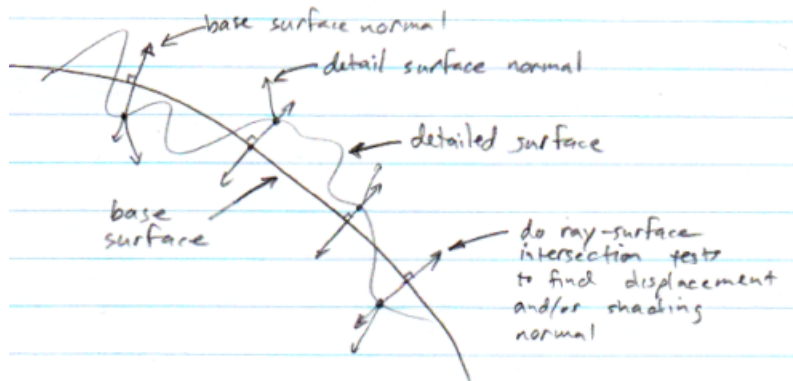 base surface normal
detail surface normal
detailed surface
base
surface
do ray-surface
intersection tests
to find displacement
and/or shading
normal